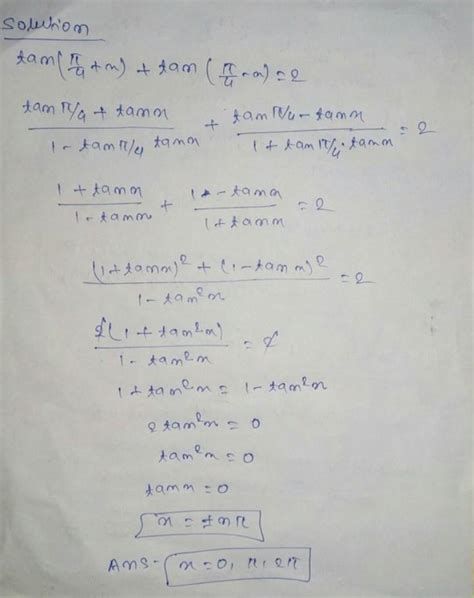 Solution
tan(π/4 + x) + tan(π/4 - x) = 2
(tan π/4 + tan x)/(1 - tan π/4 tan x) + (tan π/4 - tan x)/(1 + tan π/4 · tan x) = 2
(1 + tan x)/(1 - tan x) + (1 - tan x)/(1 + tan x) = 2
((1 + tan x)² + (1 - tan x)²)/(1 - tan²x) = 2
2(1 + tan²x)/(1 - tan²x) = 2
1 + tan²x = 1 - tan²x
2 tan²x = 0
tan²x = 0
tan x = 0
x = ±nπ
Ans- x = 0, π, 2π